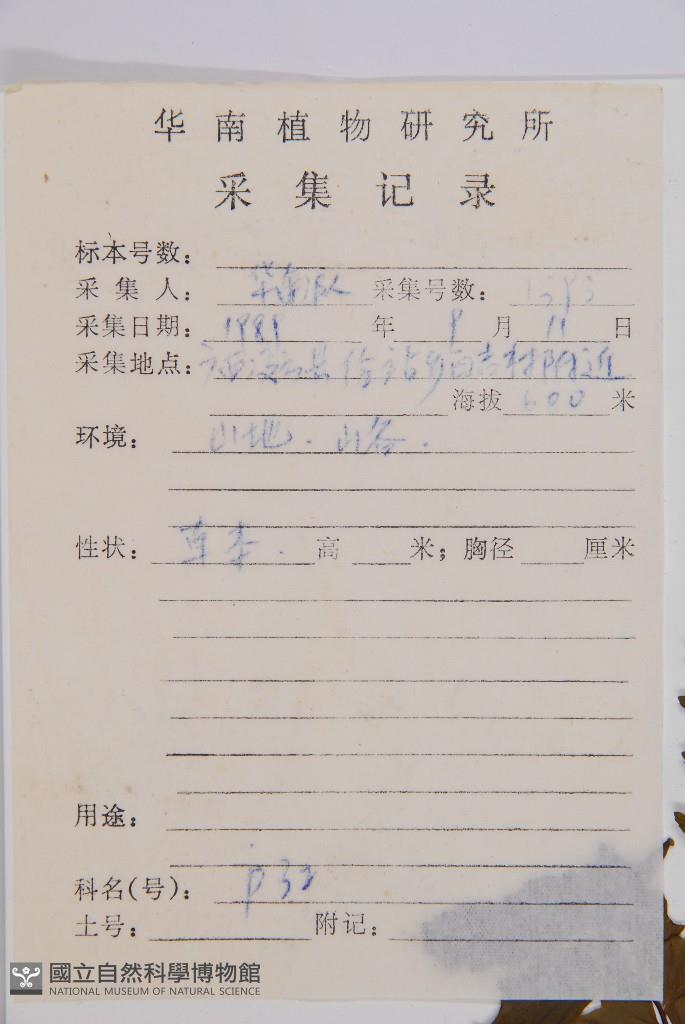 华南植物研究所
采集记录
标本号数:
采集人: 华南队 采集号数: 1393
采集日期: 1989 年 9 月 11 日
采集地点: 广西凌云县伶站乡百吉村附近
海拔 600 米
环境: 山地.山谷.
性状: 草本. 高 米; 胸径 厘米
用途:
科名(号): p32
土号: 附记:
國立自然科學博物館
NATIONAL MUSEUM OF NATURAL SCIENCE